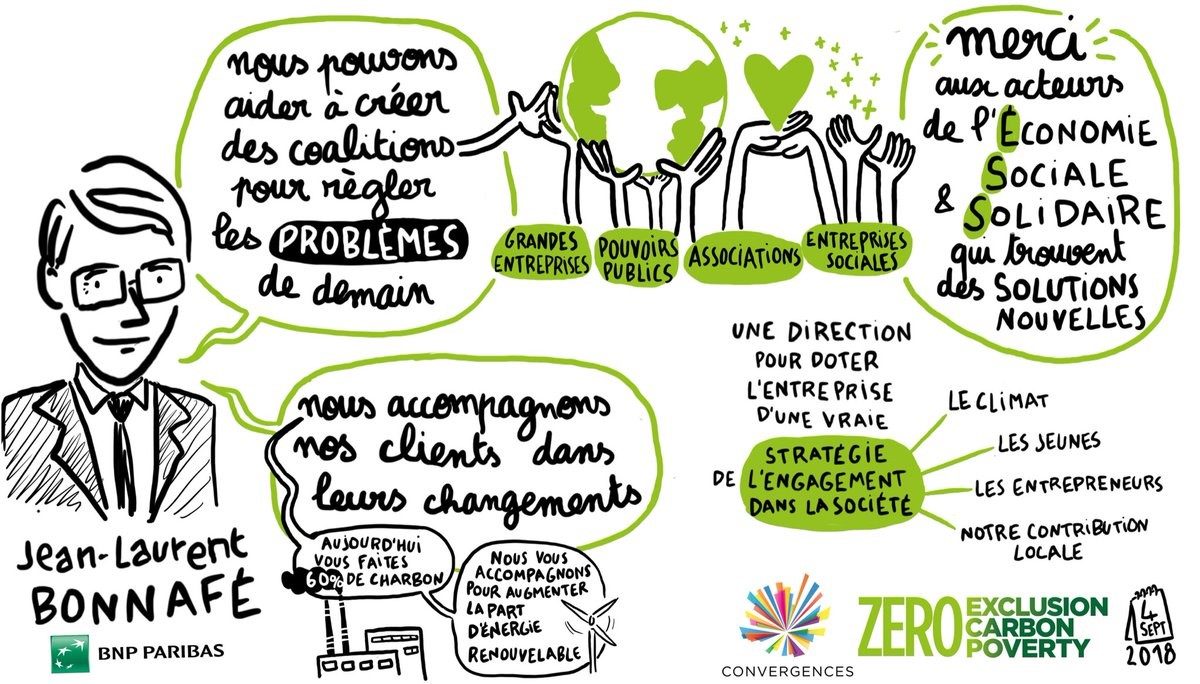 nous pouvons
aider à créer
des coalitions
pour règler
les PROBLÈMES
de demain
GRANDES
ENTREPRISES
POUVOIRS
PUBLICS
ASSOCIATIONS
ENTREPRISES
SOCIALES
merci
aux acteurs
de l'ÉCONOMIE
SOCIALE
& SOLIDAIRE
qui trouvent
des SOLUTIONS
NOUVELLES
nous accompagnons
nos clients dans
leurs changements
AUJOURD'HUI
VOUS FAITES
60% DE CHARBON
NOUS VOUS
ACCOMPAGNONS
POUR AUGMENTER
LA PART
D'ÉNERGIE
RENOUVELABLE
UNE DIRECTION
POUR DOTER
L'ENTREPRISE
D'UNE VRAIE
STRATÉGIE
DE L'ENGAGEMENT
DANS LA SOCIÉTÉ
LE CLIMAT
LES JEUNES
LES ENTREPRENEURS
NOTRE CONTRIBUTION
LOCALE
Jean-Laurent
BONNAFÉ
BNP PARIBAS
CONVERGENCES
ZERO EXCLUSION
CARBON
POVERTY
4
SEPT
2018